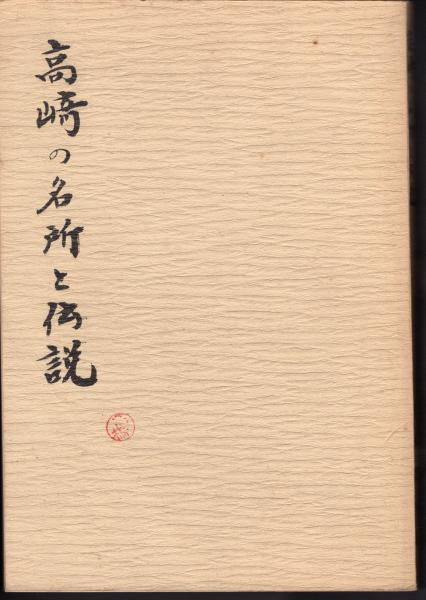 高崎の名所と伝説